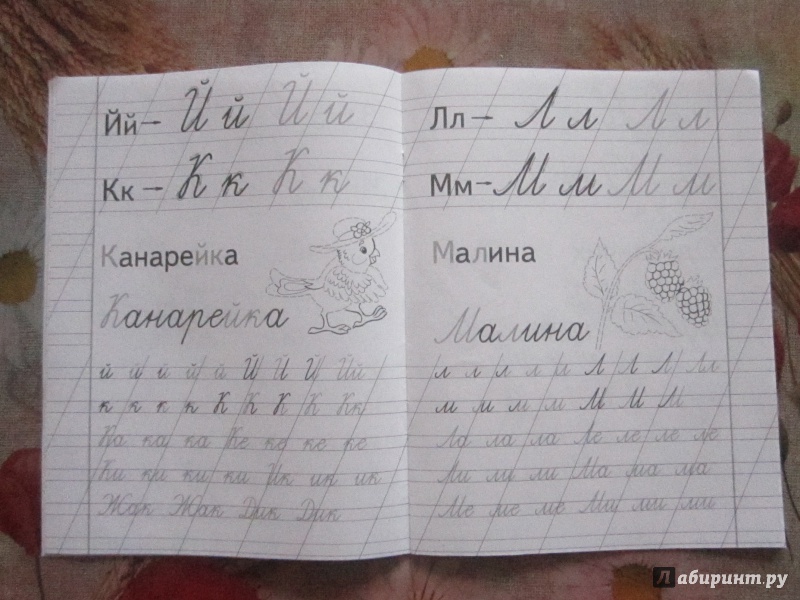 Йй→ Й й Й й
Кк→ К к К к
Канарейка
Канарейка
й й й й й Й Й Й Йй
к к к к К К К К Кк
Ка ка ка Ке ке ке ке
Ки ки ки ки Ик ик ик
Жак Жак Дик Дик
Лл→ Л л Л л
Мм→ М м М м
Малина
Малина
л л л л л Л Л Л Лл
м м м м М М М
Ла ла ла Ле ле ле ле
Ли ли ли Ма ма ма
Ме ме ме Ми ми ми
Лабиринт.ру